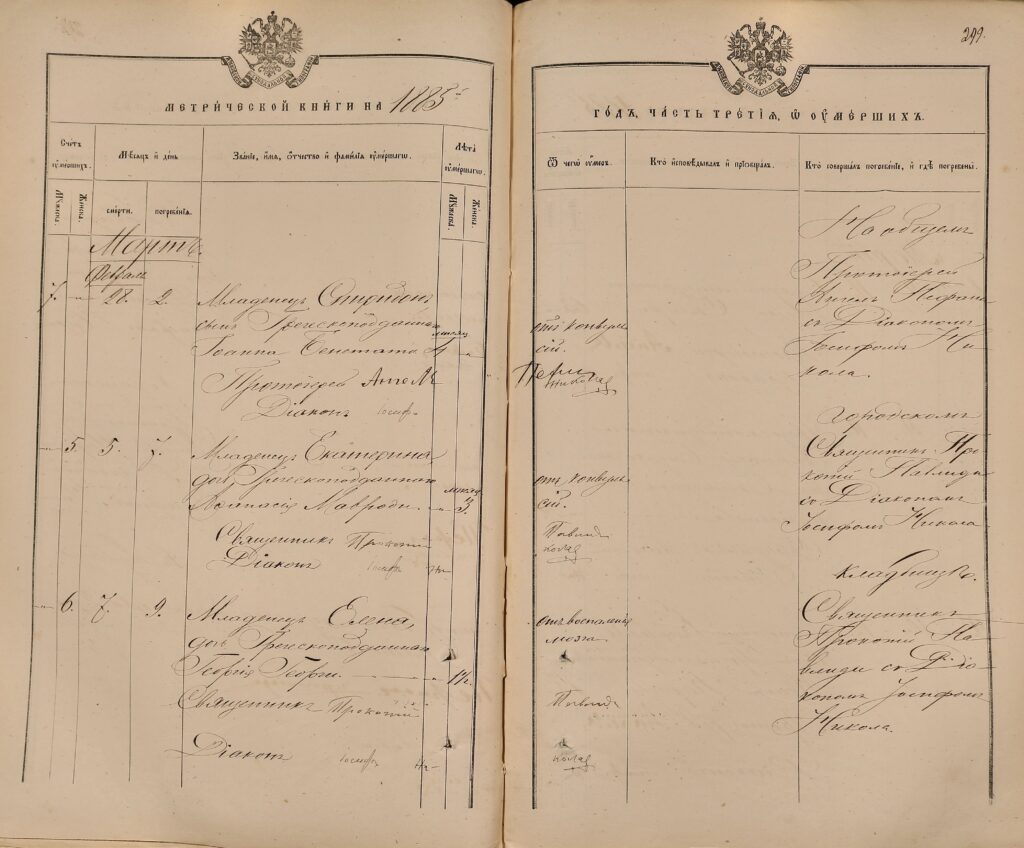 299.
МЕТРИ́ЧЕСКОЙ КНИ́ГИ НА 1885й
ГО́ДЪ, ЧА́СТЬ ТРЕ́ТІЯ, Ѡ ОУМЕ́РШИХЪ.
Счётъ оумершихъ.
Мѣсяцъ и день
Званіе, имя, отчество и фамилія оумершагѡ.
Лѣта оумершагѡ.
Ѿ чегѡ оумеръ.
Кто исповѣдывалъ и пріобщалъ.
Кто совершалъ погребеніе, и гдѣ погребены.
Мужеска.
Женска.
смерти.
погребенія.
Мужеска.
Женска.
Мартъ.
На общемъ
Феврал
7. - 28. 2. Младенецъ Спиридонъ
сынъ Греческоподданнаго
Іоанна мѣсяц 4 -
Протоіерей Ангелъ
Діаконъ Іосифъ
отъ конвуль
сій.
Николад
Протоіерей
Ангелъ
съ Діакономъ
Іосифомъ Ни
кола.
городскомъ
- 5. 5. 7. Младенецъ Екатерина,
дочь Греческоподданнаго
Аѳанасія Мавроди. - мѣсяц 3.
Священникъ Прокопій
Діаконъ Іосифъ Ни-
отъ конвуль
сій.
Павлид
колад
Священникъ Про
копій Павлиди
съ Діакономъ
Іосифомъ Никола
кладбищѣ.
- 6. 7. 9. Младенецъ Елена,
дочь Греческоподданнаго
Георгія Георги. - - 1½.
Священникъ Прокопій
Діаконъ Іосифъ Ни-
отъ воспаленія
мозга.
Павлид
колад
Священникъ
Прокопій Па
влиди съ Діа
кономъ Іосифомъ
Никола.